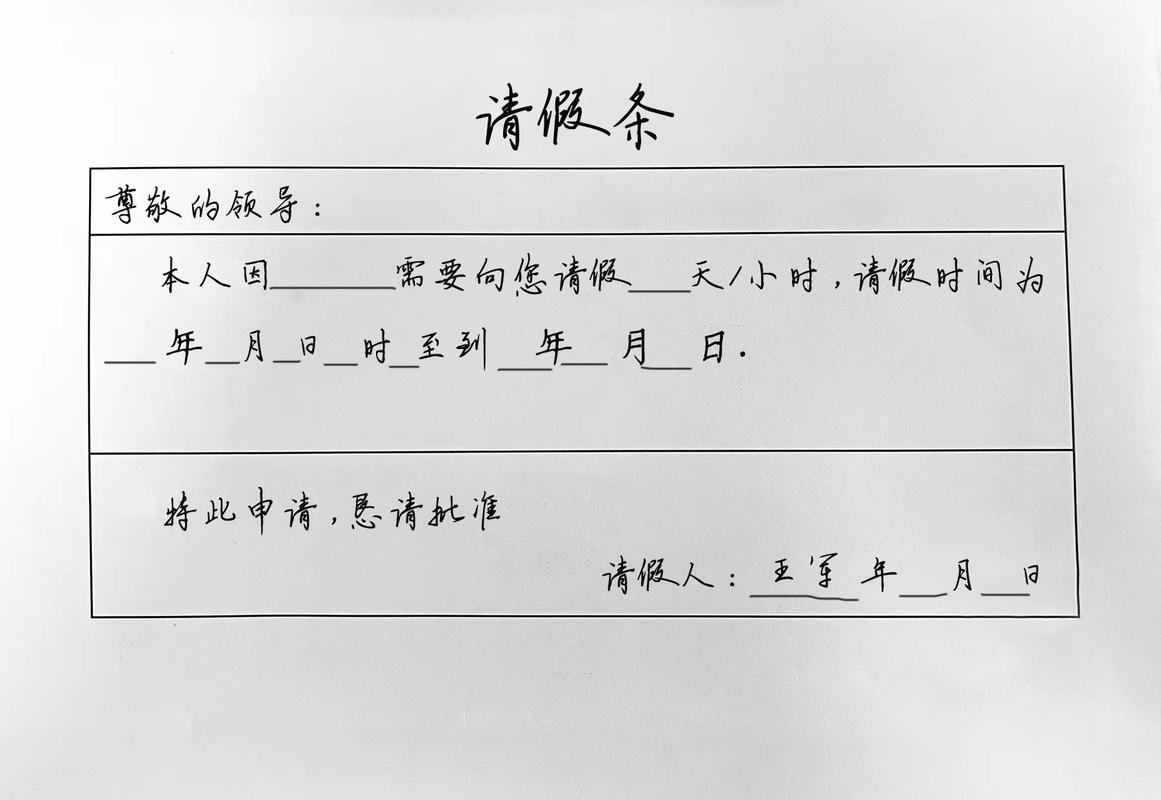 请假条
尊敬的领导：
本人因________需要向您请假____天/小时，请假时间为
___年__月__日__时__至到___年___月___日.
特此申请，恳请批准
请假人：王军 年___月___日